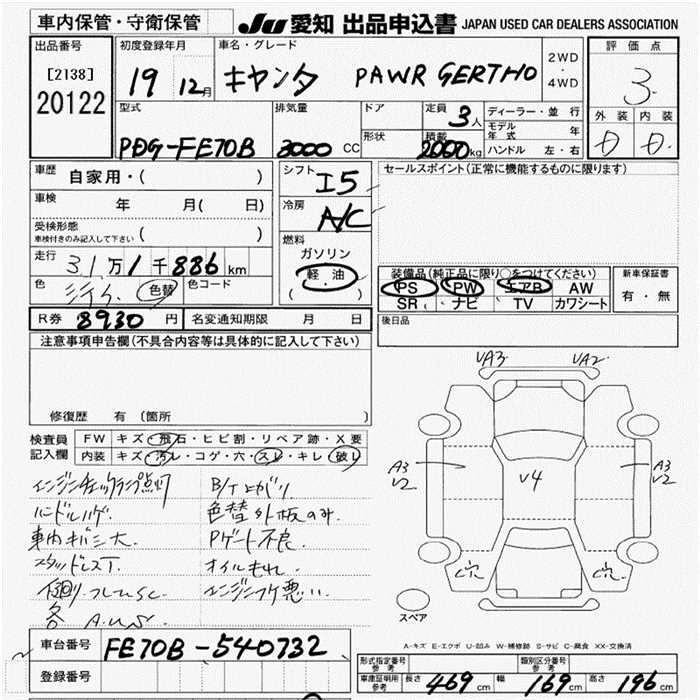 車内保管・守衛保管
JU 愛知 出品申込書 JAPAN USED CAR DEALERS ASSOCIATION
出品番号
[2138]
20122
初度登録年月
19 12月
車名・グレード
キャンタ PAWR GERTHO
2WD
・
4WD
評価点
3
外装 内装
D D
型式
PDG-FE70B
排気量
3000 CC
ドア
形状
定員
3人
積載
2000kg
ディーラー・並行
モデル年式 年
ハンドル 左・右
車歴
自家用・( )
車検
年 月( 日)
受検形態
車検付きのみ記入して下さい ( )
走行
31万1千886km
色
色替
色コード
シフト
I5
冷房
A/C
燃料
ガソリン
軽・油
( )
セールスポイント(正常に機能するものに限ります)
装備品(純正品に限り○をつけてください)
PS PW エアB AW
SR ナビ TV カワシート
新車保証書
有・無
R券 8930円 名変通知期限 月 日
後日品
注意事項申告欄(不具合内容等は具体的に記入して下さい)
修復歴 有 〔箇所 〕
検査員記入欄
FW キズ・飛石・ヒビ割・リペア跡・X要
内装 キズ・汚レ・コゲ・穴・スレ・キレ・破レ
エンジンチェックランプ点灯 B/T上がり
ハンドルハゲ 色替外板のみ.
車内キバミ大 Pゲート不良.
スタッドレスT. オイルもれ.
エンジンフケ悪い.
各 A.U.S
VA3 VA2
A3
V2
V4
A3
V2
穴 穴
スペア
A-キズ E-エクボ U-凹み W-補修跡 S-サビ C-腐食 XX-交換済
車台番号 FE70B-540732
登録番号
形式指定番号 参考
類別区分番号 参考
車庫証明用 参考 長さ 469cm 幅 169cm 高さ 196cm